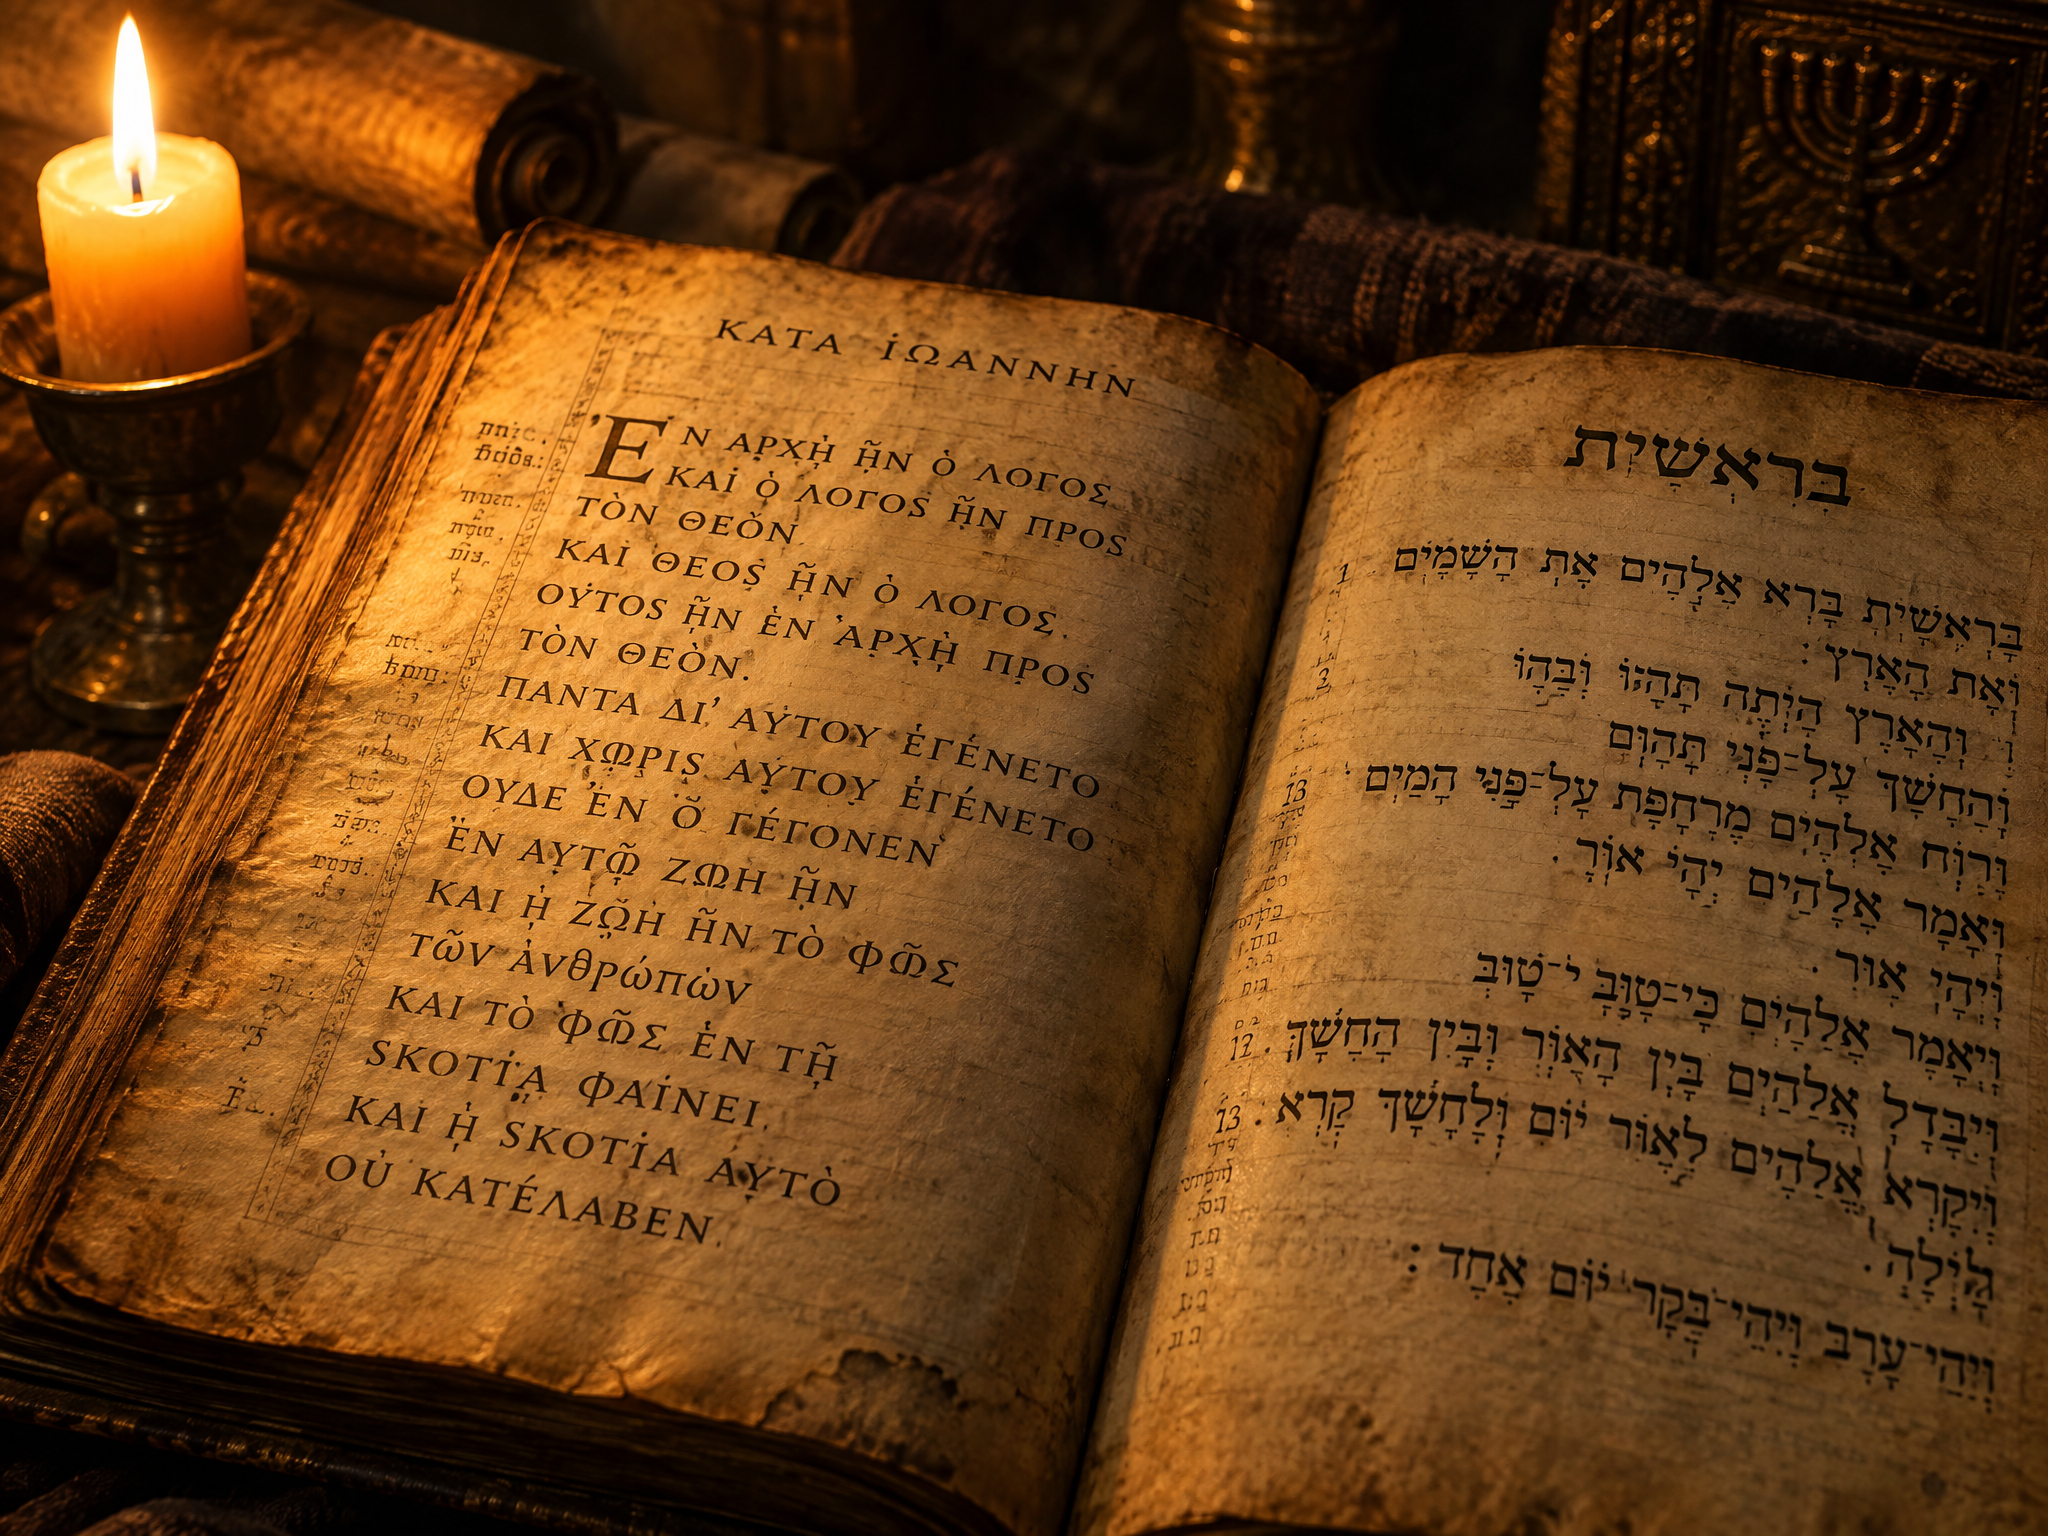 ΚΑΤΑ ἸΩΑΝΝΗΝ
ἘΝ ΑΡΧῌ ἮΝ Ὁ ΛΟΓΟΣ
ΚΑΙ Ὁ ΛΟΓΟS ἮΝ ΠΡΟS
ΤῸΝ ΘΕΟΝ
ΚΑΙ ΘΕΟS ἮΝ Ὁ ΛΟΓΟΣ.
ΟΥΤΟS ἮΝ ἘΝ ἈΡΧῌ ΠΡΟS
ΤῸΝ ΘΕῸΝ.
ΠΑΝΤΑ ΔΙ' ΑΥΤΟΥ ἘΓΈΝΕΤΟ
ΚΑΙ ΧΩΡΙS ΑΥΤΟΥ ἘΓΈΝΕΤΟ
ΟΥΔΕ ἛΝ Ὃ ΓΈΓΟΝΕΝ
ἘΝ ΑΥΤῼ ΖΩΗ ἮΝ
ΚΑΙ Ἡ ΖΩΗ ἮΝ ΤῸ ΦΩΣ
ΤΩ͂Ν Ἀνθρώπὼν
ΚΑΙ ΤῸ ΦΩΣ ἘΝ ΤΗ͂Ι
SΚΟΤΊᾼ ΦΑΊΝΕΙ.
ΚΑΙ Ἡ SΚΟΤΊΑ ΑΥΤῸ
ΟΥ̓ ΚΑΤΈΛΑΒΕΝ.
בְּרִאְשִׁיְת
1 בָּרְאִשְׁיִת בָּרְא אֱלְהִים אֶת הַשָּׁמָיִם
וְאֶת הָאָרֶץ :
2 וְהָאָרֶץ הָיְתָה תָּהוּ וּבַּהוּ
וְהַחָשָׁך עָל־פְּנִי תָּהוּם
13 וְרוּח אֱלִהִים מְרָחָפֶּת עָל־פָּנִי הַמַיִם :
וִאָמָר אֱלָהִים יְהָי אוֹר .
וְיִהְי אוֹר .
וְיִאָמָר אֱלָהִים כָּי־טָוּב י־טָוּב
12 וְיִבָּדָל אֱלָהִים בָּיְן הָאוֹר וְּבָין הָחָשָׁךְ .
13 וְיִקְרָא אֱלָהִים לָאוֹר יוֹם וְלָחָשָׁך קָרָא .
לָיְלָה .
וְיִהַי־עָרָב וָיְהִי־בָּקָר יוֹם אֶחָד :